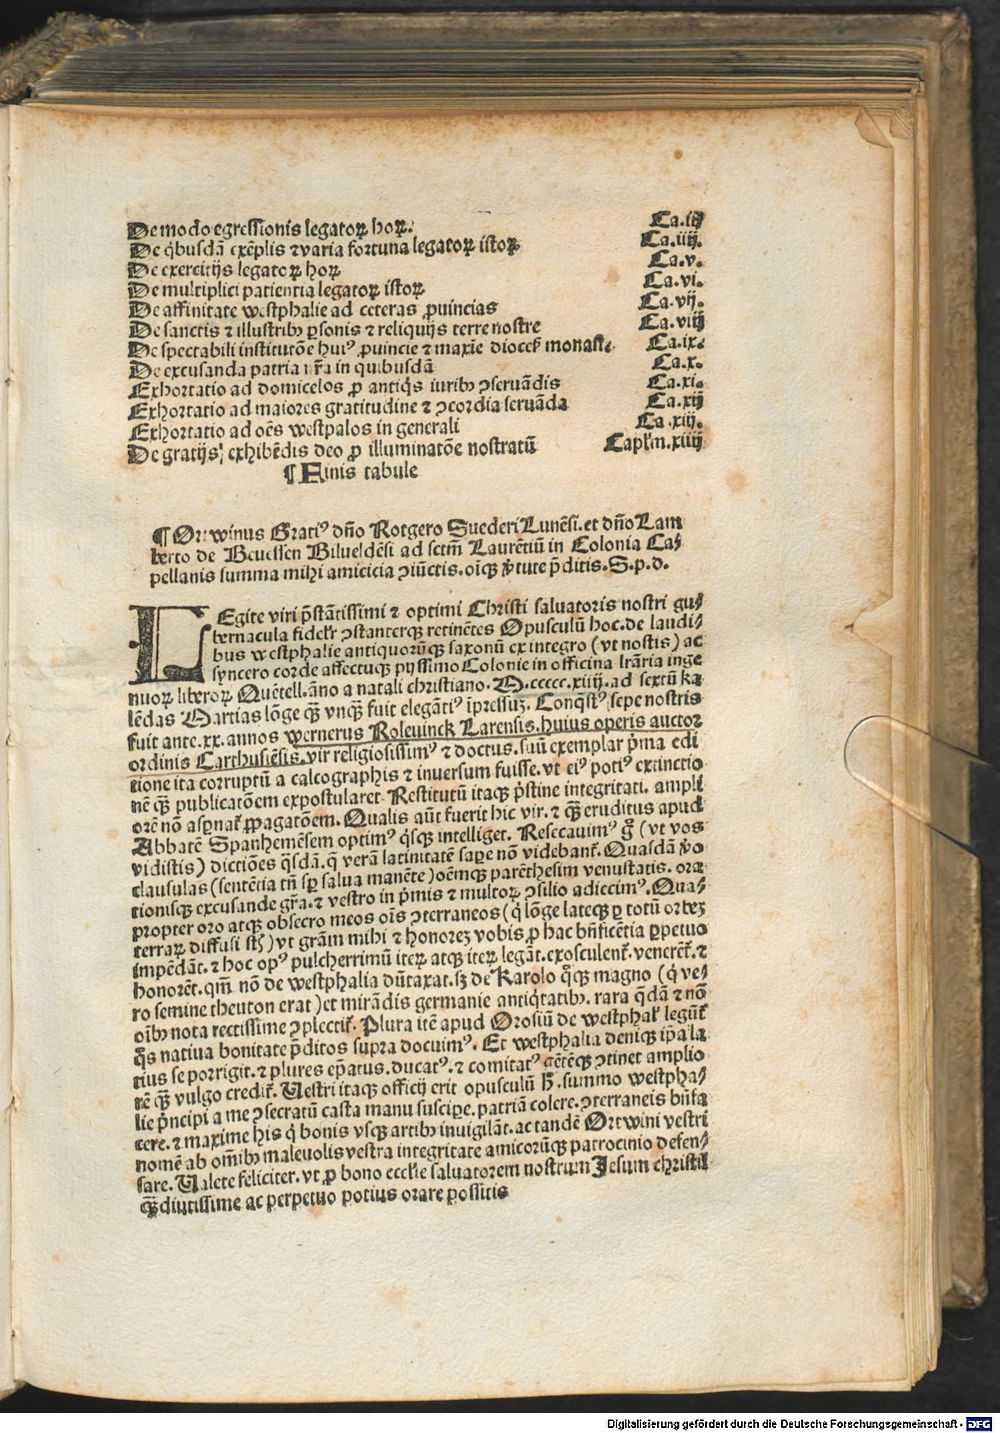 De modo egressionis legatoꝝ hoꝝ. Ca.iij
De q̇busdā exēplis ⁊varia fortuna legatoꝝ istoꝝ Ca.iiij.
De exercitijs legatoꝝ hoꝝ Ca.v.
De multiplici patientia legatoꝝ istoꝝ Ca.vi.
De affinitate westphalie ad ceteras ꝓuincias Ca.vij.
De sanctis ⁊ illustribꝰ ꝑsonis ⁊ reliquijs terre nostre Ca.viij
De spectabili institutōe huiꝰ ꝓuincie ⁊ maxīe dioceẜ monasẗ. Ca.ix.
De excusanda patria nr̄a in quibusdā Ca.x.
Exhortatio ad domicelos ꝓ antiq̇s iuribꝰ ꝯseruādis Ca.xi.
Exhortatio ad maiores gratitudine ⁊ ꝯcordia seruāda Ca.xij
Exhortatio ad oēs westpalos in generali Ca.xiij.
De gratijs exhibēdis deo ꝓ illuminatōe nostratū Capl̓m.xiiij
¶ Finis tabule
¶ Ortwinus Gratiꝰ dn̄o Rotgero Suederi Lunēsi. et dn̄o Lam
berto de Beuessen Bilueldēsi ad sctm̄ Laurētiū in Colonia Ca⸗
pellanis summa mihi amicicia ꝯiūctis. oīqꝫ v̓tute p̄ditis. S.p.d.
LEgite viri p̄stātissimi ⁊ optimi Christi saluatoris nostri gu⸗
bernacula fidelr̄ ꝯstanterqꝫ retinētes Opusculū hoc. de laudi⸗
bus westphalie antiquorūqꝫ saxonū ex integro (vt nostis) ac
syncero corde affectuqꝫ pijssimo Colonie in officina lr̄aria inge
nuoꝝ liberoꝝ Quētell. āno a natali christiano. M.ccccc.xiiij. ad sextū ka
lēdas Martias lōge qꝫ̄ vnqꝫ̄ fuit elegātiꝰ īpressuꝫ. Conq̄stꝰ sepe nostris
fuit ante.xx.annos wernerus Roleuinck Larensis. huius operis auctor
ordinis Carthusiēsis. vir religiosissimꝰ ⁊ doctus. suū exemplar p̓ma edi
tione ita corruptū a calcographis ⁊ inuersum fuisse. vt eiꝰ potiꝰ extinctio
nē qꝫ̄ publicatōem expostularet. Restitutū itaqꝫ p̓stine integritati. ampli
orē nō asꝑnaẗ ꝓpagatōem. Qualis aūt fuerit hic vir. ⁊ qꝫ̄ eruditus apud
Abbatē Spanhemēsem optimꝰ q̇sqꝫ intelliget. Resecauimꝰ g̊ (vt vos
vidistis) dictiōes q̄sdā. q̄ verā latinitatē sapere nō videbanẗ. Quasdā v̓o
clausulas (sentētia tn̄ sꝑ salua manēte) oēmqꝫ parēthesim venustatis. ora
tionisqꝫ excusande gr̄a. ⁊ vestro in p̓mis ⁊ multoꝝ ꝯsilio adiecimꝰ. Qua⸗
propter oro atqꝫ obsecro meos oīs ꝯterraneos (q̇ lōge lateqꝫ ꝑ totū orbeꝫ
terraꝝ diffusi st̄) vt grām mihi ⁊ honoreꝫ vobis ꝓ hac bn̄ficētia ꝑpetuo
impēdāt. ⁊ hoc opꝰ pulcherrimū iteꝝ atqꝫ iteꝝ legāt. exosculenẗ. venerēẗ. ⁊
honorēt. qm̄ nō de westphalia dūtaxat. sꝫ de Karolo q̊qꝫ magno (q̇ ve⸗
ro semine theuton erat) et mirādis germanie antiq̇tatibꝰ. rara q̄dā ⁊ nō
oībꝰ nota rectissime ꝯplectiẗ. Plura itē apud Orosiū de westphal̓ legūẗ
q̄s natiua bonitate p̄ditos supra docuimꝰ. Et westphalia deniqꝫ ip̄a la
tius se porrigit. ⁊ plures ep̄atus. ducatꝰ. ⁊ comitatꝰ gētēqꝫ ꝯtinet amplio
rē qꝫ̄ vulgo crediẗ. Vestri itaqꝫ officij erit opusculū h̄. summo westpha⸗
lie p̓ncipi a me ꝯsecratū casta manu suscipe. patriā colere. ꝯterraneis bn̄fa
cere. ⁊ maxime his q̇ bonis vsqꝫ artibꝰ inuigilāt. ac tandē Ortwini vestri
nomē ab om̄ibꝰ maleuolis vestra integritate amicorūqꝫ patrocinio defen⸗
sare. Valete feliciter. vt ꝓ bono eccl̓ie saluatorem nostrum Jesum christū
qꝫ̄diutissime ac perpetuo potius orare possitis
Digitalisierung gefördert durch die Deutsche Forschungsgemeinschaft - DFG